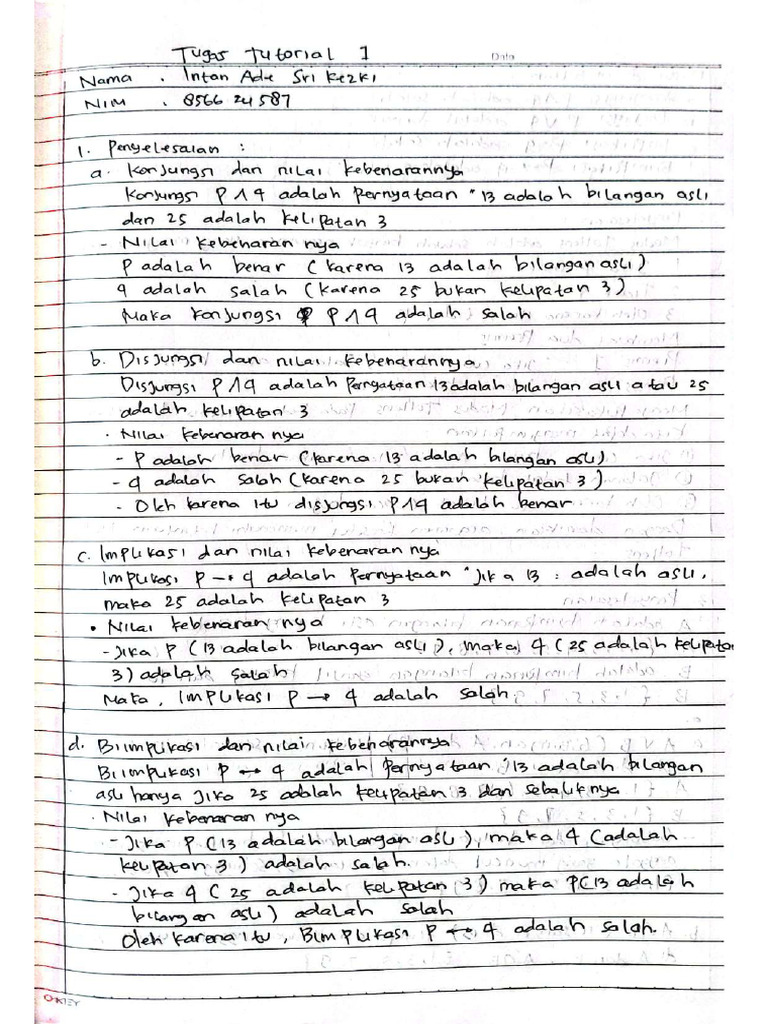 Tugas Tutorial 1
Date
Nama : Intan Ade Sri Rezki
NIM : 856624587
1. Penyelesaian :
a. Konjungsi dan nilai kebenarannya
Konjungsi P ∧ q adalah pernyataan "13 adalah bilangan asli
dan 25 adalah kelipatan 3
- Nilai kebenaran nya
P adalah benar (karena 13 adalah bilangan asli)
q adalah salah (karena 25 bukan kelipatan 3)
Maka konjungsi P ∧ q adalah salah
b. Disjungsi dan nilai kebenarannya
Disjungsi P ∧ q adalah pernyataan 13 adalah bilangan asli atau 25
adalah kelipatan 3
• Nilai kebenaran nya
- P adalah benar (karena 13 adalah bilangan asli)
- q adalah salah (karena 25 bukan kelipatan 3)
- Oleh karena itu disjungsi P ∧ q adalah benar
c. Implikasi dan nilai kebenaran nya
Implikasi P → q adalah pernyataan "Jika 13 : adalah asli,
maka 25 adalah kelipatan 3
• Nilai kebenaran nya
- Jika P (13 adalah bilangan asli), maka q (25 adalah kelipatan
3) adalah salah
Maka, Implikasi P → q adalah salah
d. Biimplikasi dan nilai kebenarannya
Biimplikasi P ↔ q adalah pernyataan, 13 adalah bilangan
asli hanya jika 25 adalah kelipatan 3 dan sebaliknya
• Nilai kebenaran nya
- Jika P (13 adalah bilangan asli), maka q (adalah
kelipatan 3) adalah salah.
- Jika q (25 adalah kelipatan 3) maka P(13 adalah
bilangan asli) adalah salah
Oleh karena itu, Bimplikasi P ↔ q adalah salah.
OKEY